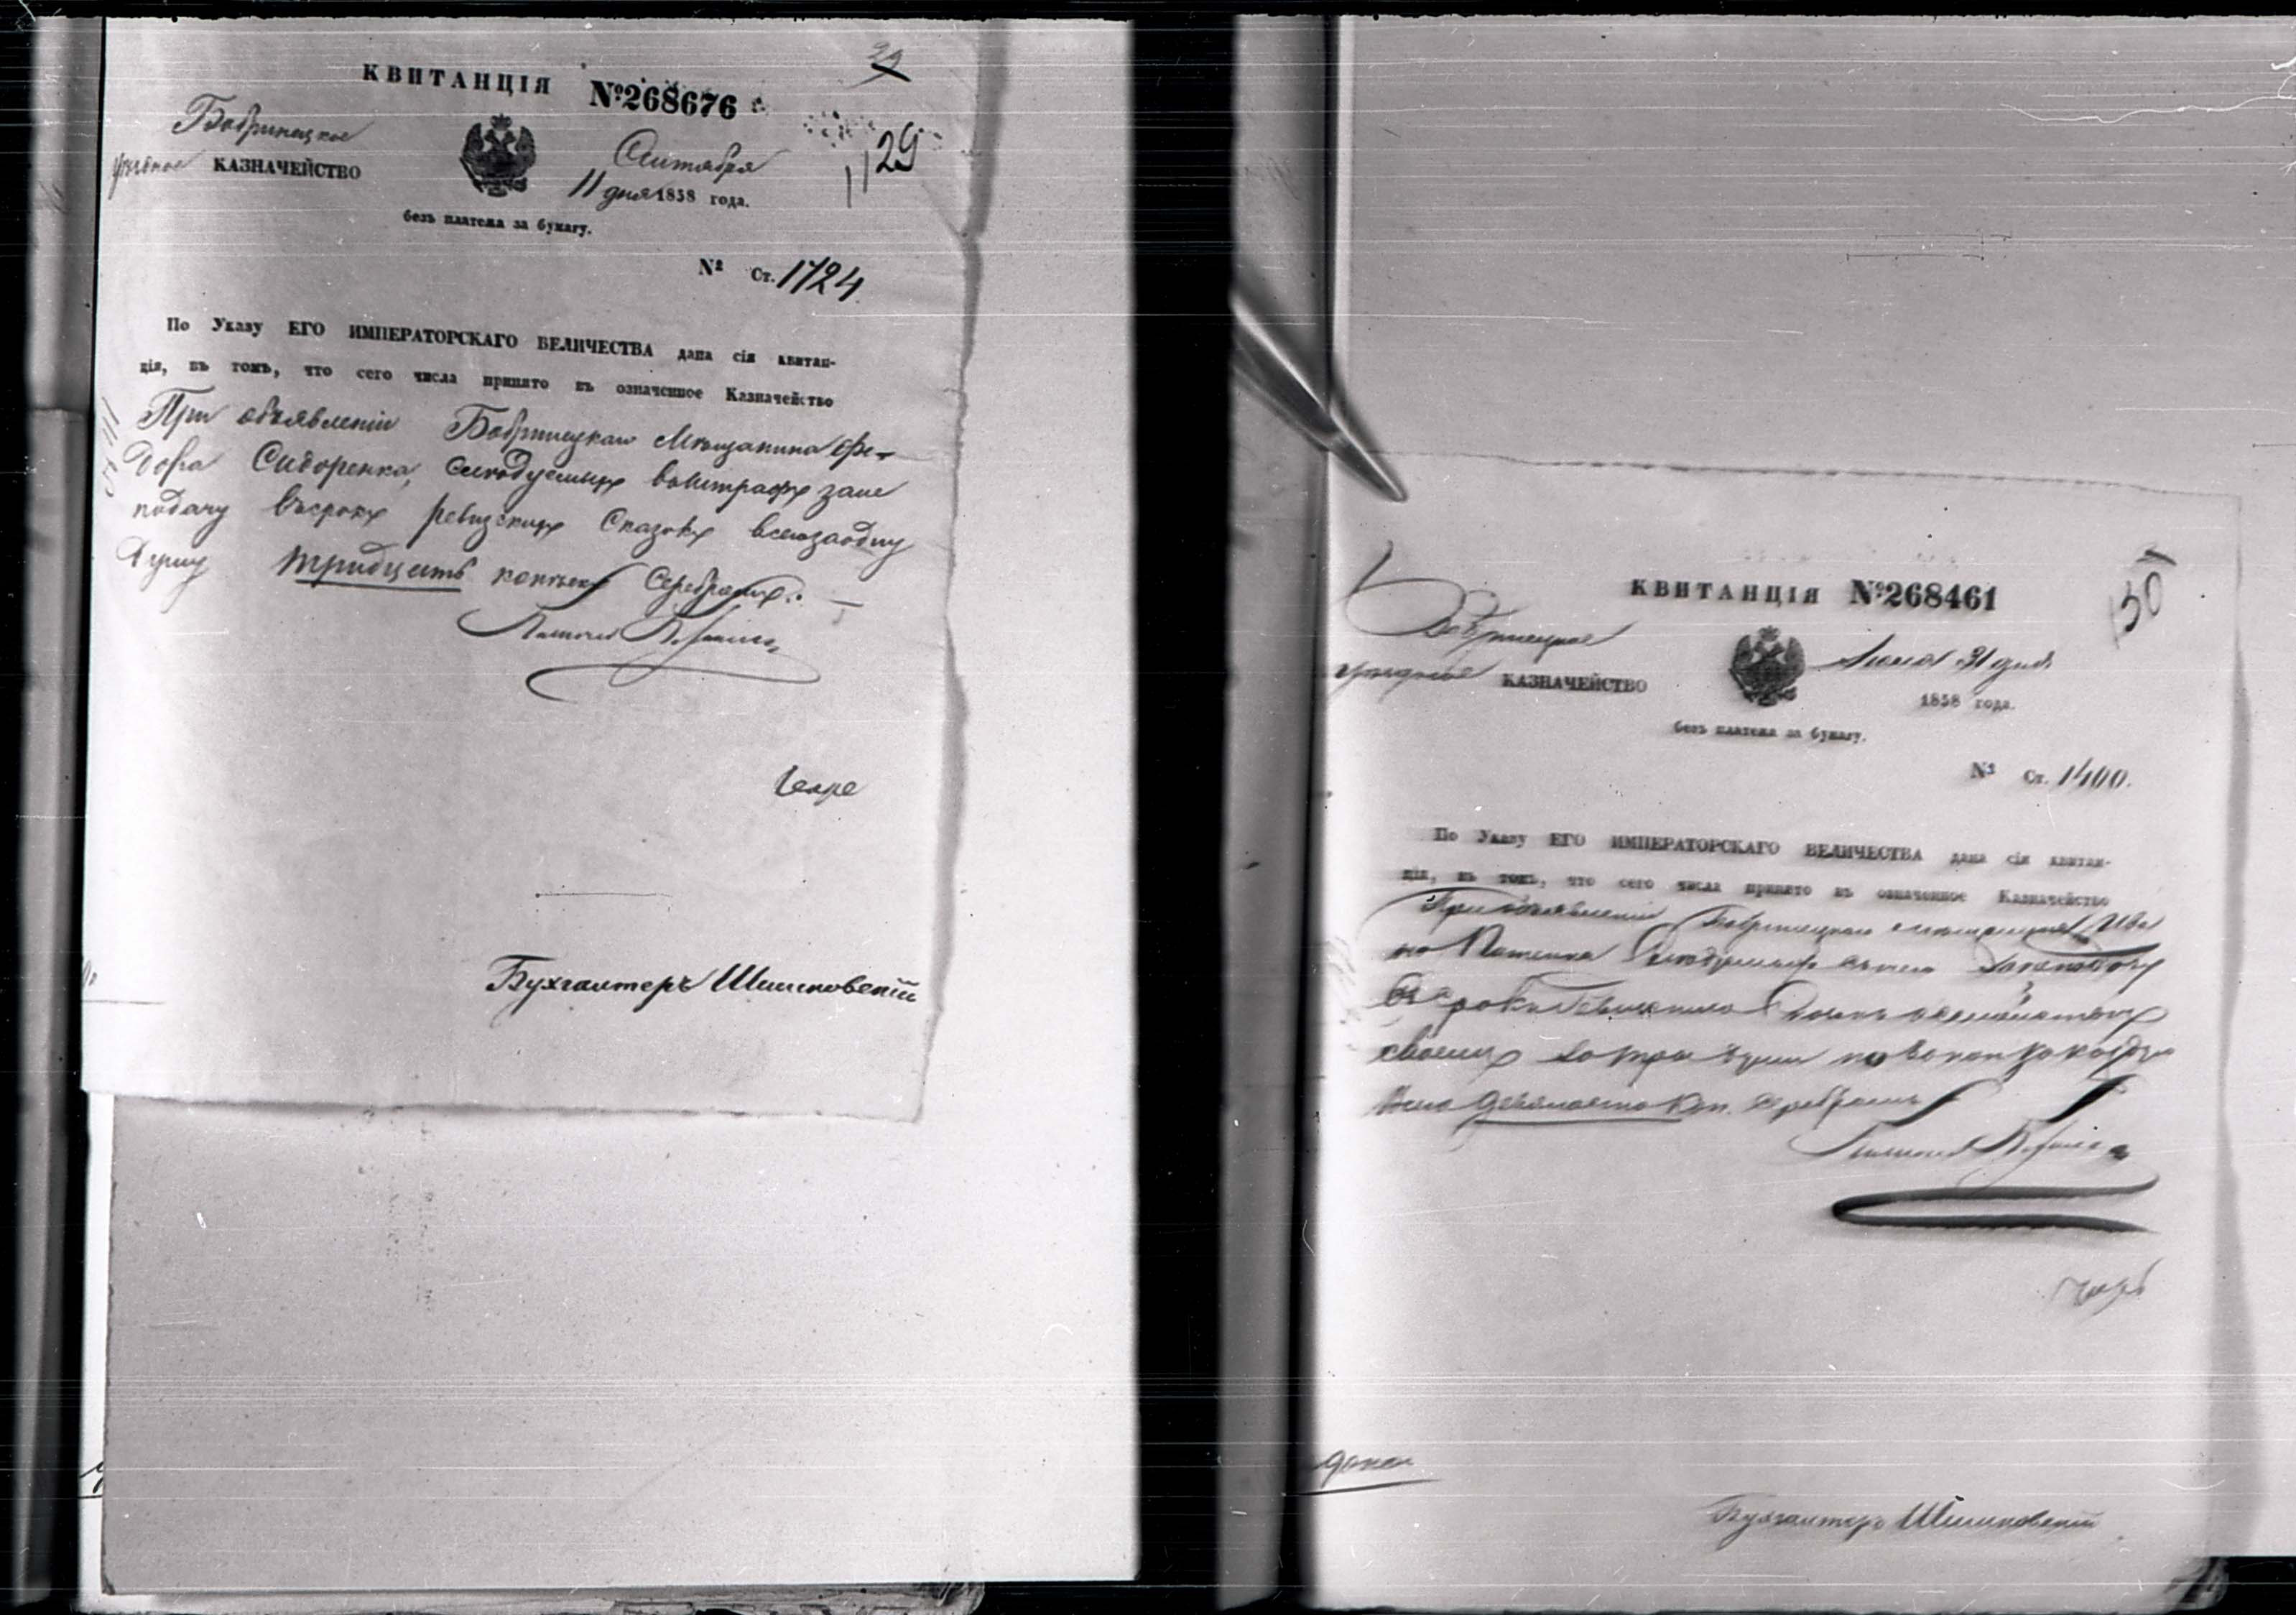 КВИТАНЦІЯ №268676
29
Бобринецкое
уѣздное КАЗНАЧЕЙСТВО
Сентября
11 дня 1858 года.
безъ платежа за бумагу.
№ Ст. 1724
По Указу ЕГО ИМПЕРАТОРСКАГО ВЕЛИЧЕСТВА дана сія квитан-
ція, въ томъ, что сего числа принято въ означенное Казначейство
При объявленіи Бобринецкаго Мѣщанина Фе-
дора Сидоренка, слѣдуемыхъ въ штрафъ за не
подачу въ срокъ ревизскихъ Сказокъ всего за одну
душу тридцать копѣекъ Серебромъ.
Бухгалтеръ Шишковскій
КВИТАНЦІЯ №268461
30
Бобринецкое
уѣздное КАЗНАЧЕЙСТВО
31 дня
1858 года.
безъ платежа за бумагу.
№ Ст. 1400.
По Указу ЕГО ИМПЕРАТОРСКАГО ВЕЛИЧЕСТВА дана сія квитан-
ція, въ томъ, что сего числа принято въ означенное Казначейство
При объявленіи Бобринецкаго мѣщанина Ива
на слѣдуемыхъ
въ срокъ
своихъ за три души по 30 коп за каждую
всего девяносто коп. серебромъ
Бухгалтеръ Шишковскій